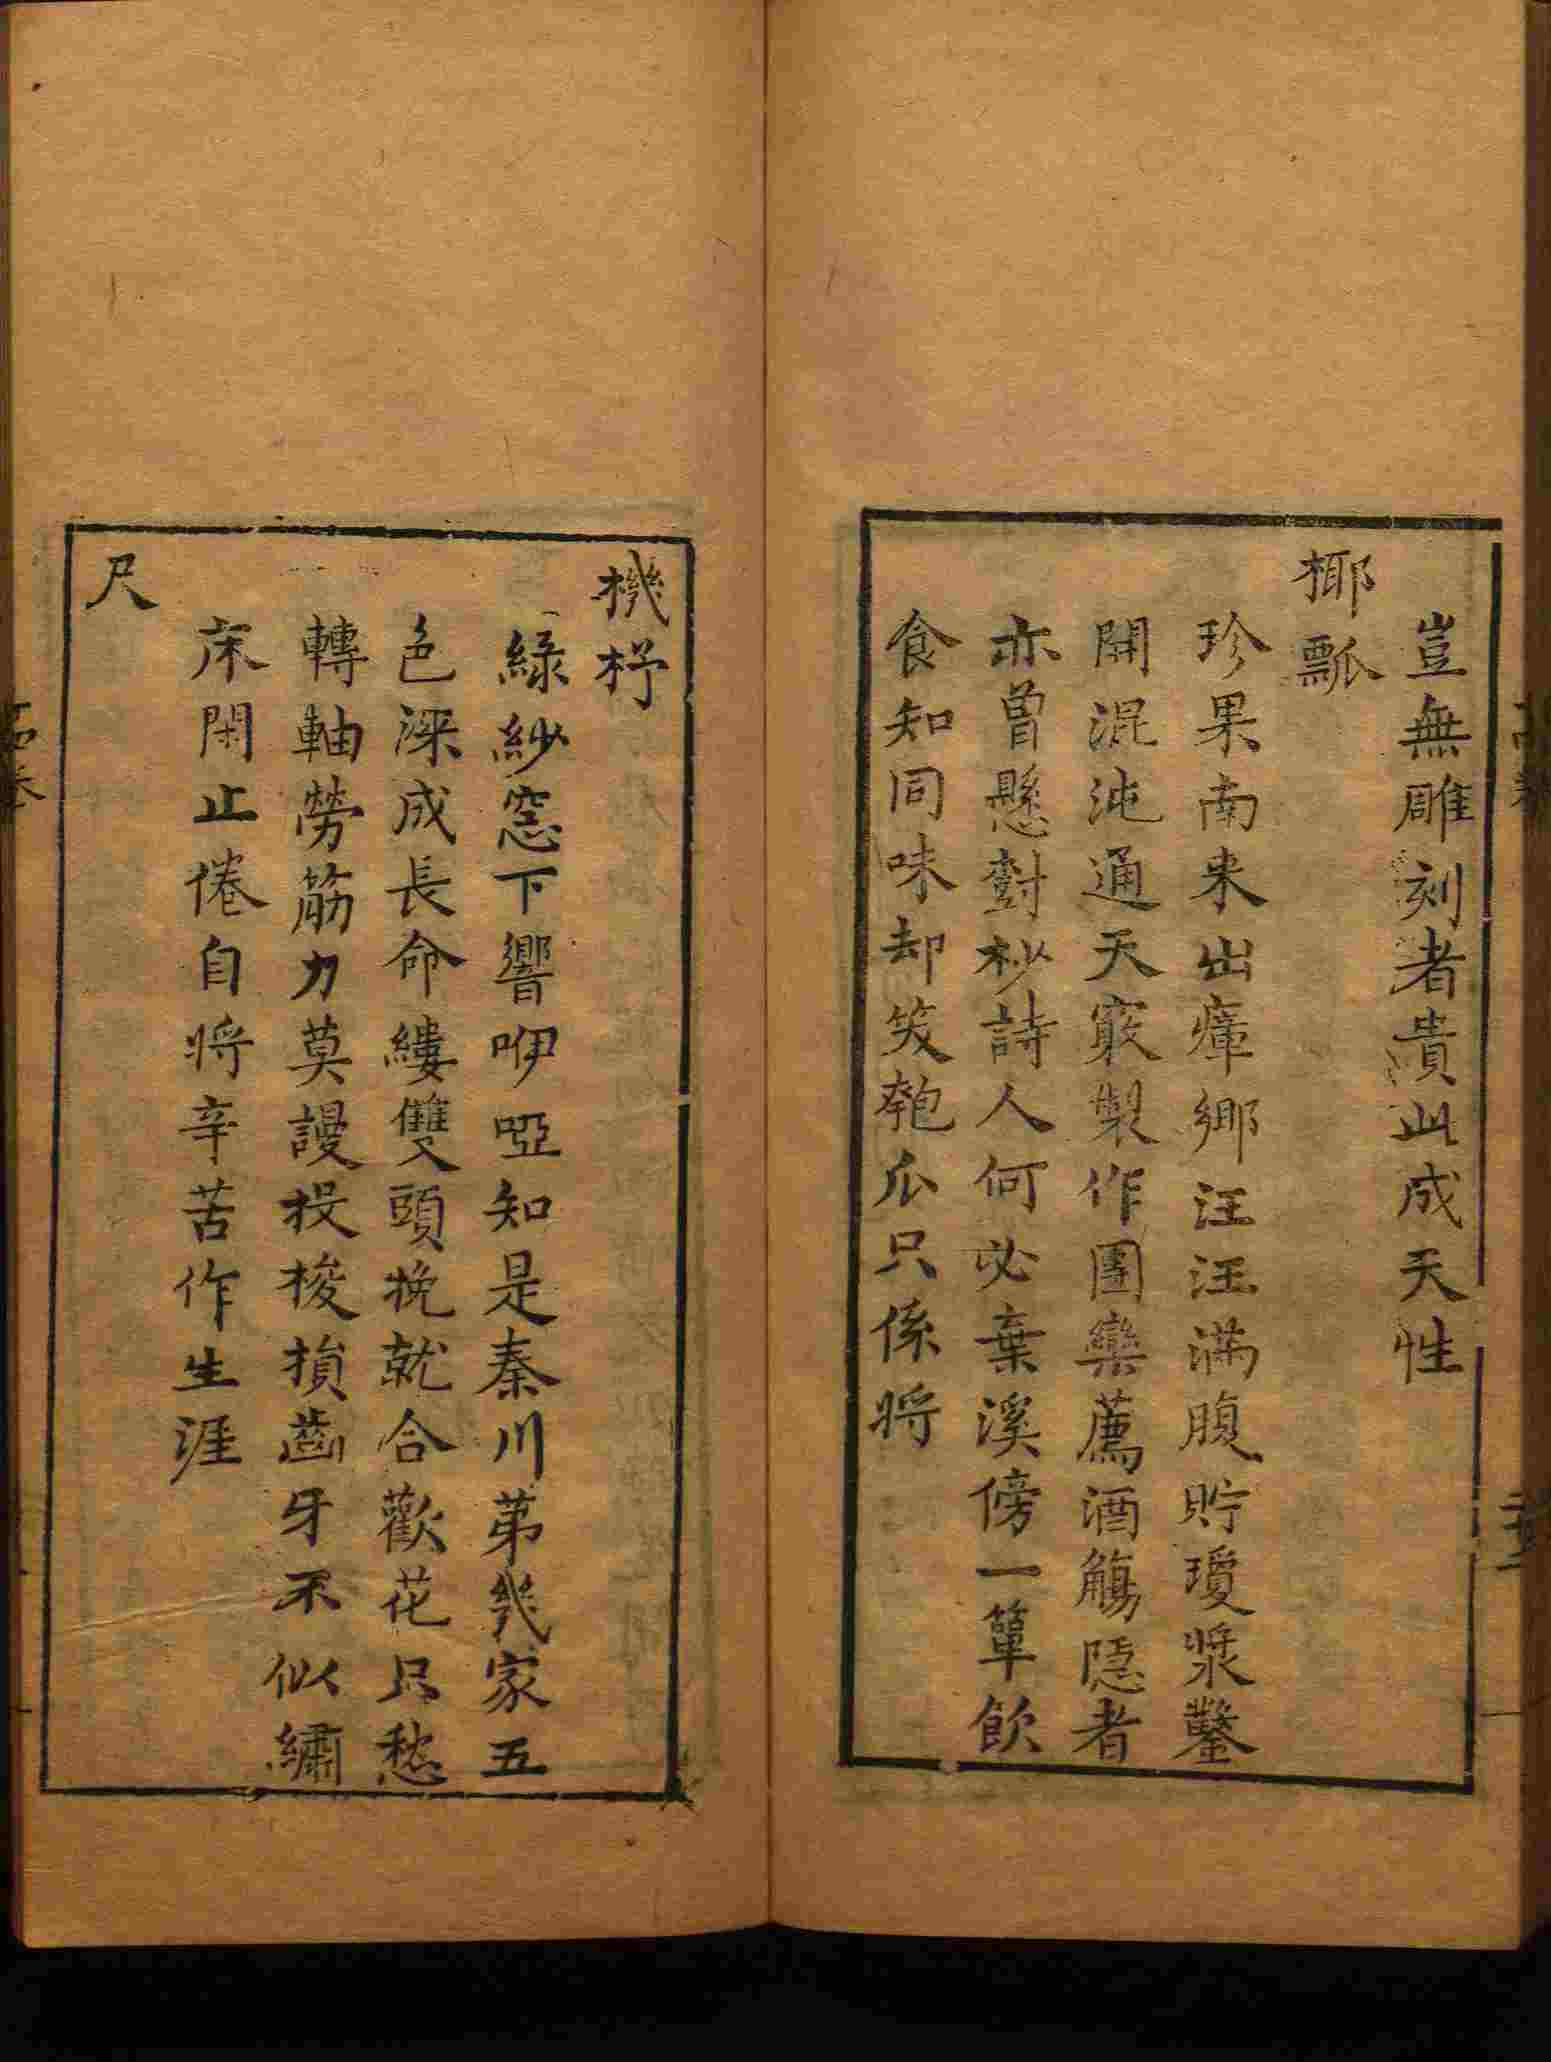 豈無雕刻者貴此成天性
椰瓢
珍果南来出瘴鄉汪汪滿腹貯瓊漿鑿
開混沌通天竅製作團欒薦酒觴隱者
亦曾懸對杪詩人何必棄溪傍一簞飲
食知同味却笑匏瓜只係將
機杼
綠紗窓下響咿啞知是秦川苐幾家五
色深成長命縷雙頭挽就合歡花只愁
轉軸勞筋力莫謾投梭損齒牙不似繡
床閑止倦自將辛苦作生涯
尺